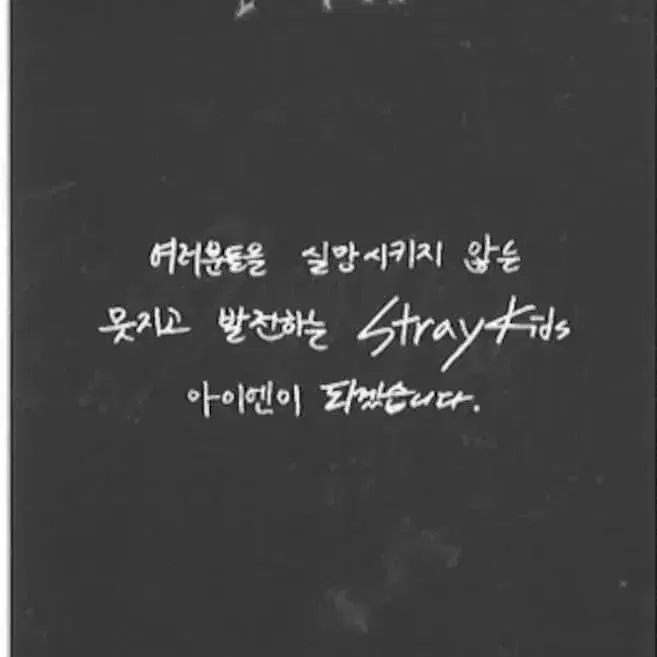 여러분들을 실망시키지 않는
못지고 발전하는 Stray Kids
아이엔이 되겠습니다.